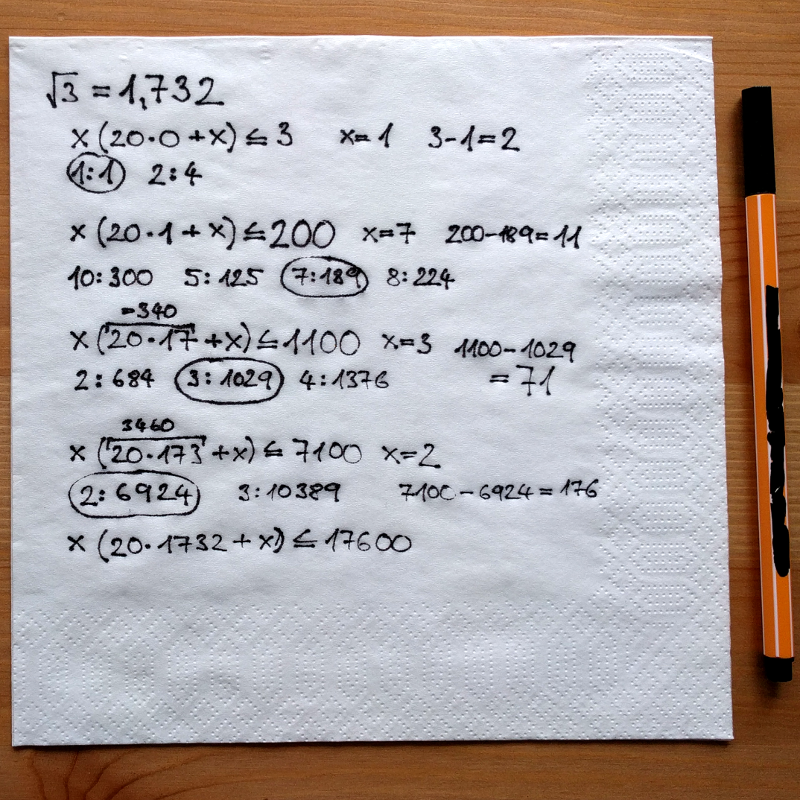 √3 = 1,732
x (20·0 + x) ≤ 3 x=1 3-1=2
1:1 2:4
x (20·1 + x) ≤ 200 x=7 200-189=11
10:300 5:125 7:189 8:224
=340
x (20·17 + x) ≤ 1100 x=3 1100-1029
2:684 3:1029 4:1376 = 71
3460
x (20·173 + x) ≤ 7100 x=2
2:6924 3:10389 7100-6924=176
x (20·1732 + x) ≤ 17600